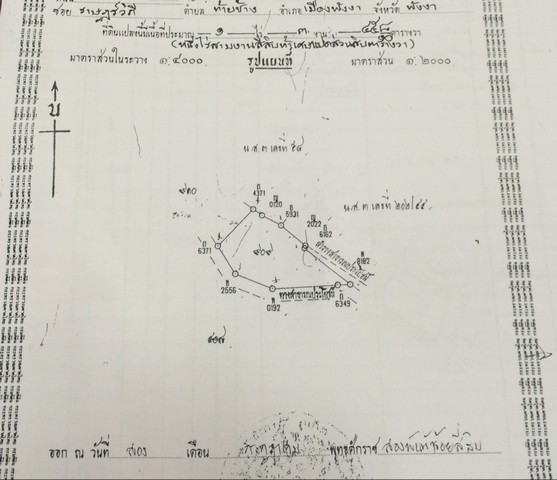 ซอย ราษฎร์รวดี ตำบล ท้ายช้าง อำเภอ เมืองพังงา จังหวัด พังงา
ที่ดินแปลงนี้มีเนื้อที่ประมาณ ๑ ไร่ ๓ งาน ตารางวา
มาตราส่วนในระวาง ๑:๔๐๐๐ รูปแผนที่ มาตราส่วน ๑:๒๐๐๐
น
น.ส.๓ เลขที่ ๕๘
๙๓๐
ถ 4371
0120
ถ 5931
น.ส.๓ เลขที่ ๒๐๒/๕๕
2022
ถ 6162
ถ 6371
๙๐๙
ทางสาธารณประโยชน์
ห 8182
ห 2556
ทางสาธารณประโยชน์
ห 0192
ถ 6349
ออก ณ วันที่ สอง เดือน พุทธศักราช สองพันห้าร้อยสี่สิบ